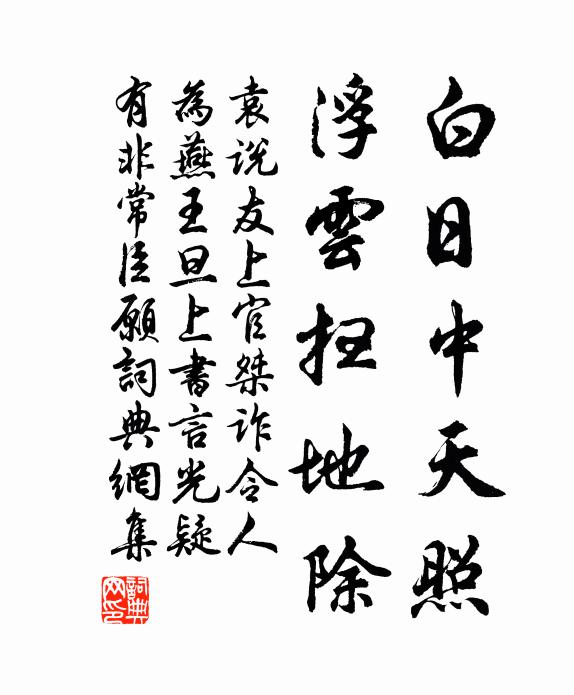 白日中天照
浮雲扫地除
袁说友上官桀诈令人
為燕王旦上書言光疑
有非常臣願詞典網集
詞典
网印